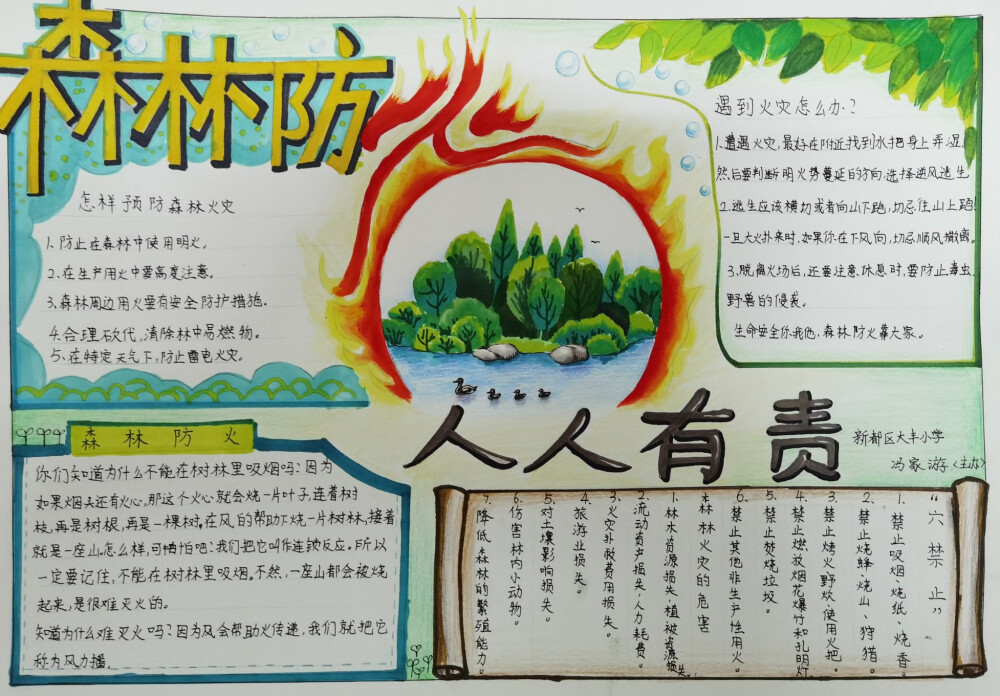 森林防
怎样预防森林火灾
1.防止在森林中使用明火。
2.在生产用火中要高度注意。
3.森林周边用火要有安全防护措施。
4.合理砍代,清除林中易燃物。
5.在特定天气下,防止雷电火灾。
遇到火灾怎么办?
1.遭遇火灾,最好在附近找到水把身上弄湿,
然后要判断明火势蔓延的方向.选择逆风逃生
2.逃生应该横切或者向山下跑,切忌往山上跑!
一旦大火扑来时,如果你在下风向,切忌顺风撤离。
3.脱离火场后,还要注意.休息时,要防止毒虫、
野兽的侵袭。
生命安全你我他,森林防火靠大家。
人人有责
新都区大丰小学
冯家游
森林防火
你们知道为什么不能在树林里吸烟吗?因为
如果烟头还有火心,那这个火心就会烧一片叶子,连着树
枝,再是树根,再是一棵树,在风的帮助下烧一片树林,接着
就是一座山.怎么样,可怕怕吧?我们把它叫作连锁反应。所以
一定要记住,不能在树林里吸烟。不然,一座山都会被烧
起来,是很难灭火的。
知道为什么难灭火吗?因为风会帮助火传递,我们就把它
称为风力播。
“六禁止”
1.禁止吸烟、烧纸、烧香。
2.禁止烧蜂、烧山、狩猎。
3.禁止烤火野炊、使用火把。
4.禁止燃放烟花爆竹和孔明灯
5.禁止焚烧垃圾。
6.禁止其他非生产性用火。
森林火灾的危害
1.林木资源损失、植被资源损失。
2.流动资产损失、人力耗费。
3.火灾扑救费用损失。
4.旅游业损失。
5.对土壤影响损失。
6.伤害林内小动物。
7.降低森林的繁殖能力。